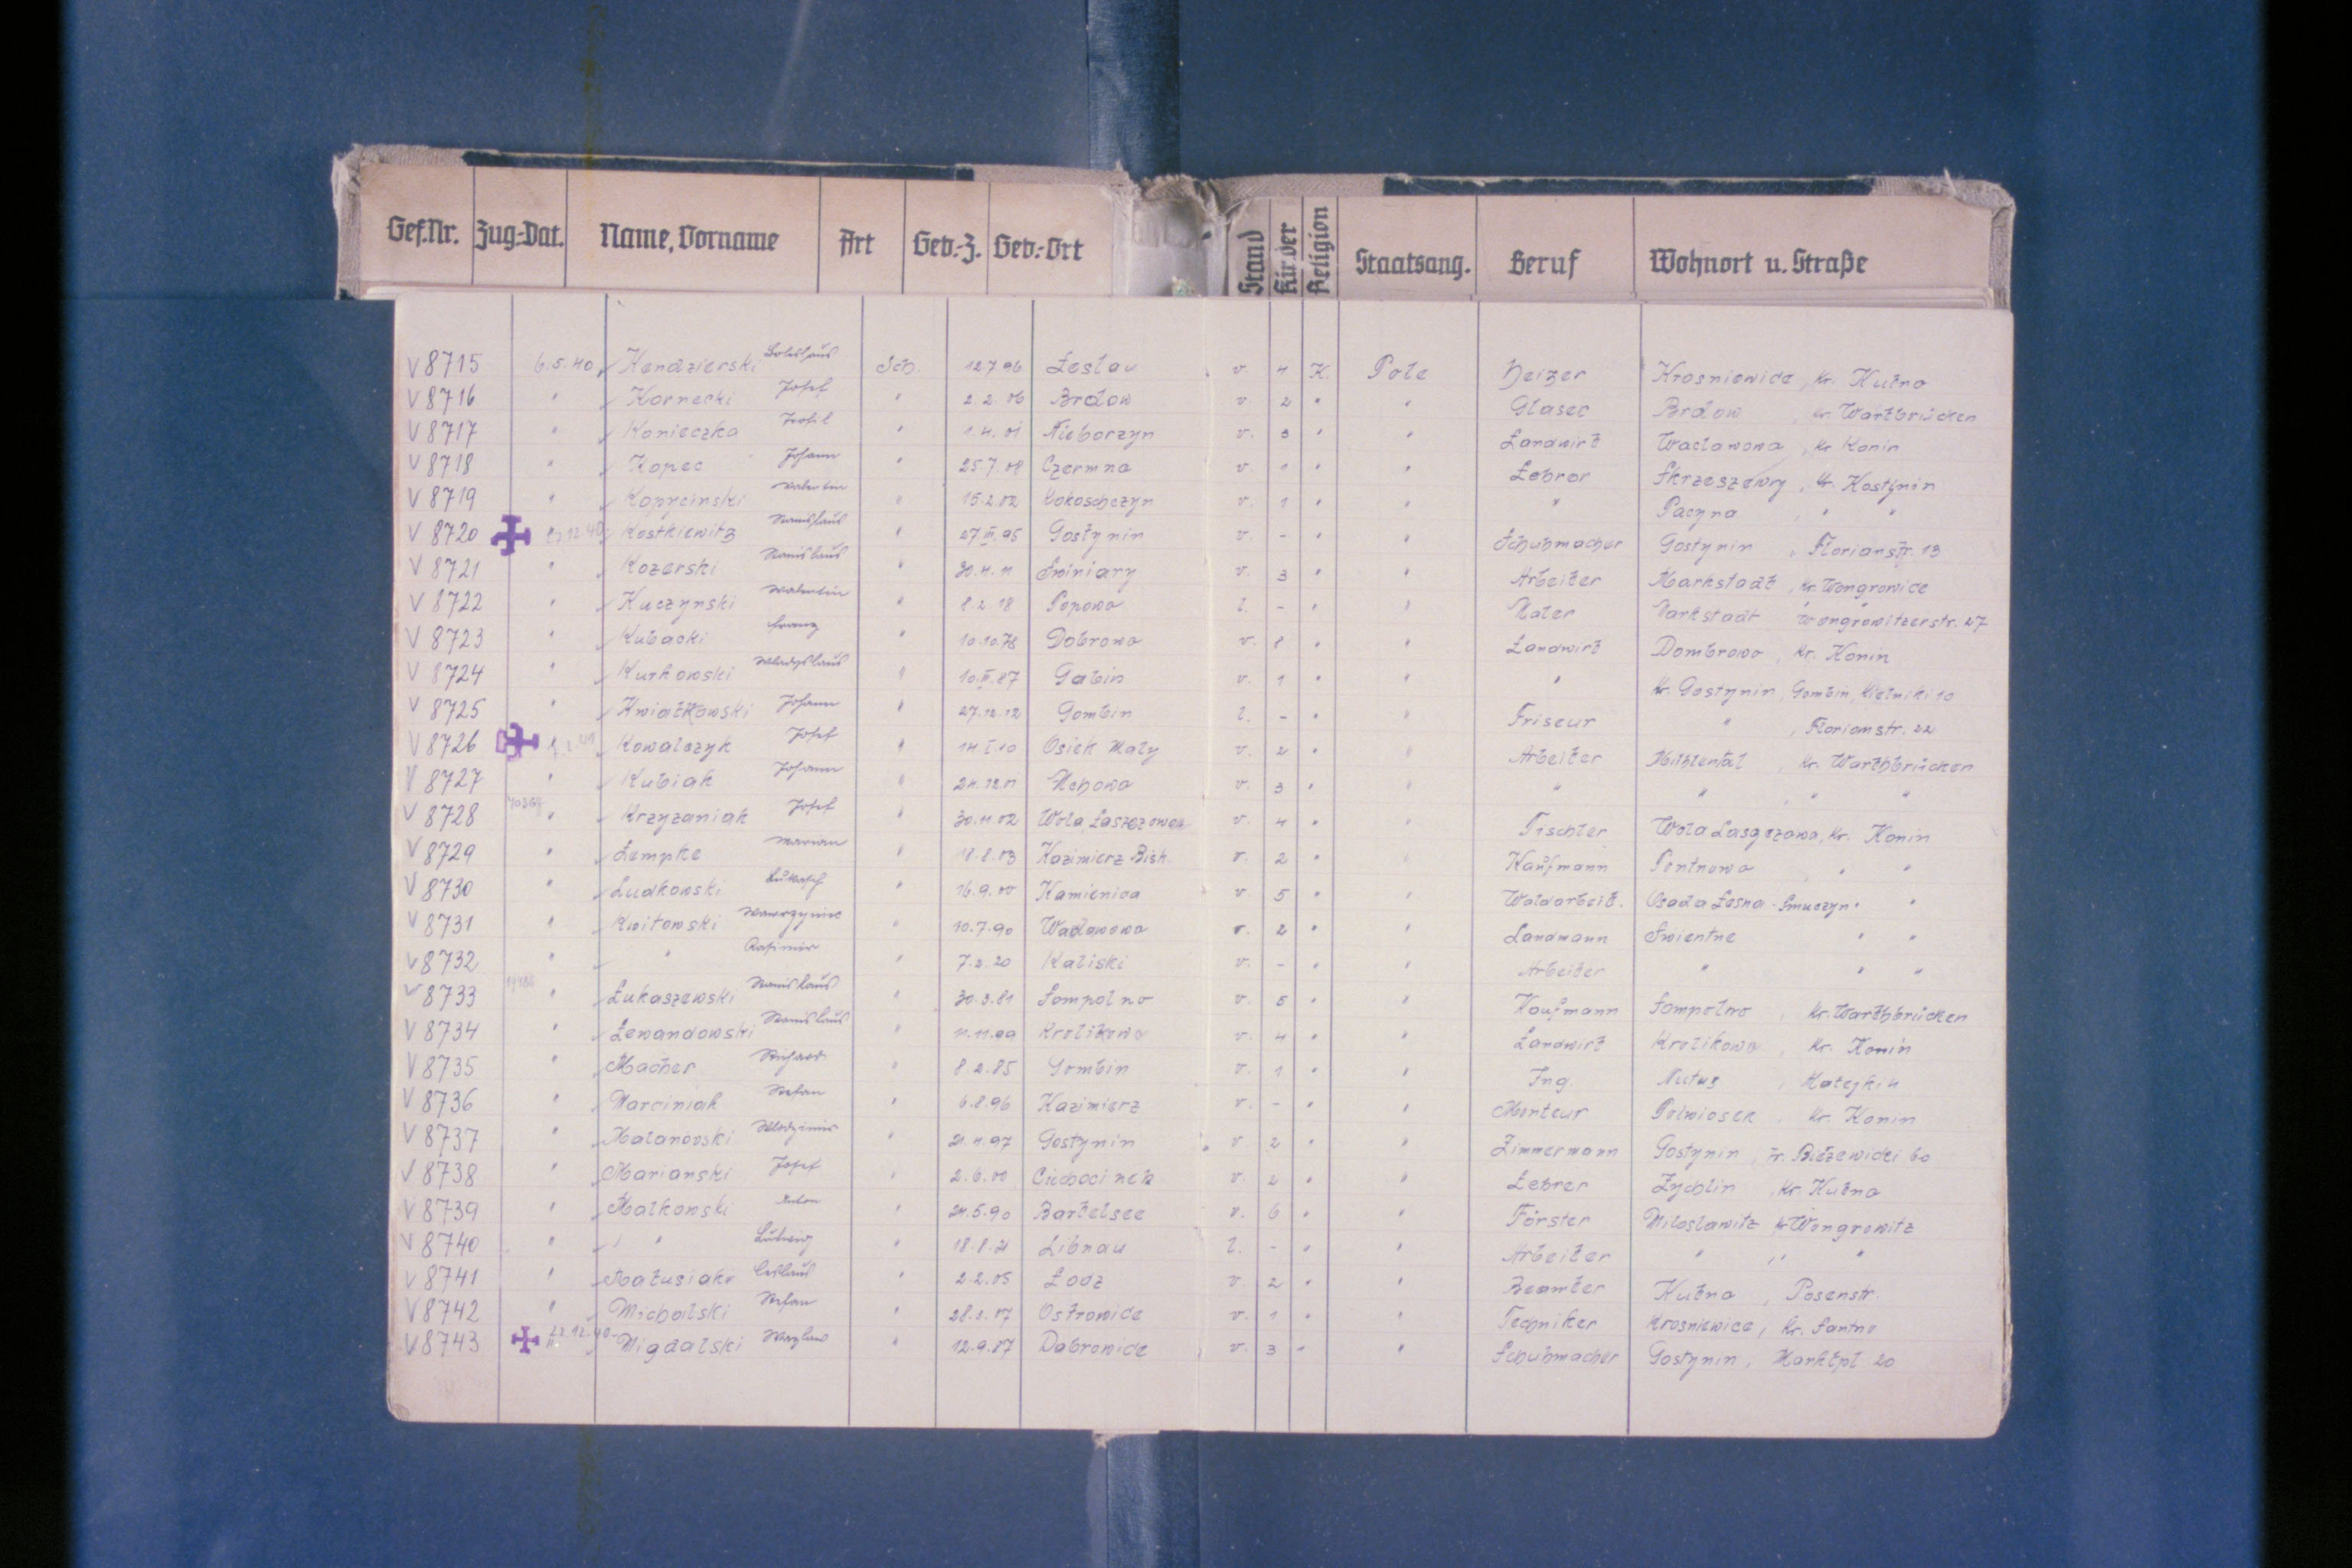 Gef.Nr. Zug.-Dat. Name, Vorname Art Geb.-Z. Geb.-Ort Stand Kinder Religion Staatsang. Beruf Wohnort u. Straße
V 8715 6.5.40 Kendzierski Boleslaus Sch. 12.7.96 Leslau v. 4 K. Pole Heizer Krosniewice, Kr. Kutno
V 8716 " Kornecki Josef " 2.2.06 Brdow v. 2 " " Glaser Brdow, Kr. Warthbrücken
V 8717 " Konieczka " 1.4.01 Nieborzyn v. 3 " " Landwirt Waclawowa, Kr. Konin
V 8718 " Kopec Johann " 25.7.08 Czermna v. 1 " " Lehrer Skrzeszewy, Kr. Kostynin
V 8719 " Kopycinski Valentin " 15.2.02 Kokoschczyn v. 1 " " " Pacyna, " "
V 8720 " 12.40 Kostkiewitz Stanislaus " 27.III.95 Gostynin v. - " " Schuhmacher Gostynin, Florianstr. 13
V 8721 " Kozerski Stanislaus " 30.4.11 Swiniary v. 3 " " Arbeiter Markstadt, Kr. Wongrowice
V 8722 " Kuczynski Valentin " 8.2.18 Popowo l. - " " Maler Markstadt Wongrowitzerstr. 27
V 8723 " Kubacki Franz " 10.10.78 Dobrowo v. 8 " " Landwirt Dombrowo, Kr. Konin
V 8724 " Kurkowski Wladyslaus " 10.III.87 Gabin v. 1 " " " Kr. Gostynin, Gombin, Kielniki 10
V 8725 " Kwiatkowski Johann " 27.12.12 Gombin l. - " " Friseur ", Florianstr. 22
V 8726 " Kowalczyk Josef " 14.I.10 Osiek Maly v. 2 " " Arbeiter Mühlental, Kr. Warthbrücken
V 8727 " Kubiak Johann " 24.12.01 Nchowo v. 3 " " " " , " "
V 8728 " Krzyzaniak Josef " 30.11.02 Wola Laszczowa v. 4 " " Tischler Wola Lasgczowa, Kr. Konin
V 8729 " Lempke Marian " 18.8.03 Kazimierz Bisk. v. 2 " " Kaufmann Pontnowo , " "
V 8730 " Ludkowski Lukasch " 16.9.00 Kamienica v. 5 " " Waldarbeit. Osada Lesna - Smuczyn " "
V 8731 " Kwitowski Wawrzyniec " 10.7.90 Waclawowo v. 2 " " Landmann Swientne " "
V 8732 " " Kasimir " 7.2.20 Kaliski v. - " " Arbeiter " " "
V 8733 " Lukaszewski Stanislaus " 30.3.81 Sompolno v. 5 " " Kaufmann Sompolno, Kr. Warthbrücken
V 8734 " Lewandowski Stanislaus " 11.11.99 Krolikowo v. 4 " " Landwirt Krolikowo, Kr. Konin
V 8735 " Macher Richard " 8.2.85 Gombin v. 1 " " Ing. , Matejki 4
V 8736 " Marciniak Stefan " 6.8.96 Kazimierz v. - " " Monteur Polwiosek Kr. Konin
V 8737 " Malanowski Wlodzimir " 21.4.97 Gostynin v. 2 " " Zimmermann Gostynin, 60
V 8738 " Marianski Josef " 2.6.00 Ciechocinek v. 2 " " Lehrer Zychlin, Kr. Kutno
V 8739 " Malkowski Anton " 24.5.90 Bartelsee v. 6 " " Förster Miloslawitz Kr. Wongrowitz
V 8740 " " Ludwig " 18.8.21 Libnau l. - " " Arbeiter " " "
V 8741 " Matusiak Ceslaus " 2.2.05 Lodz v. 2 " " Beamter Kutno, Posenstr.
V 8742 " Michalski Stefan " 28.3.07 Ostrowice v. 1 " " Techniker Krosniewice, Kr. Santno
V 8743 " 22.12.40 Migdalski Wazlaw " 12.9.87 Dabrowice v. 3 " " Schuhmacher Gostynin, Marktpl. 20